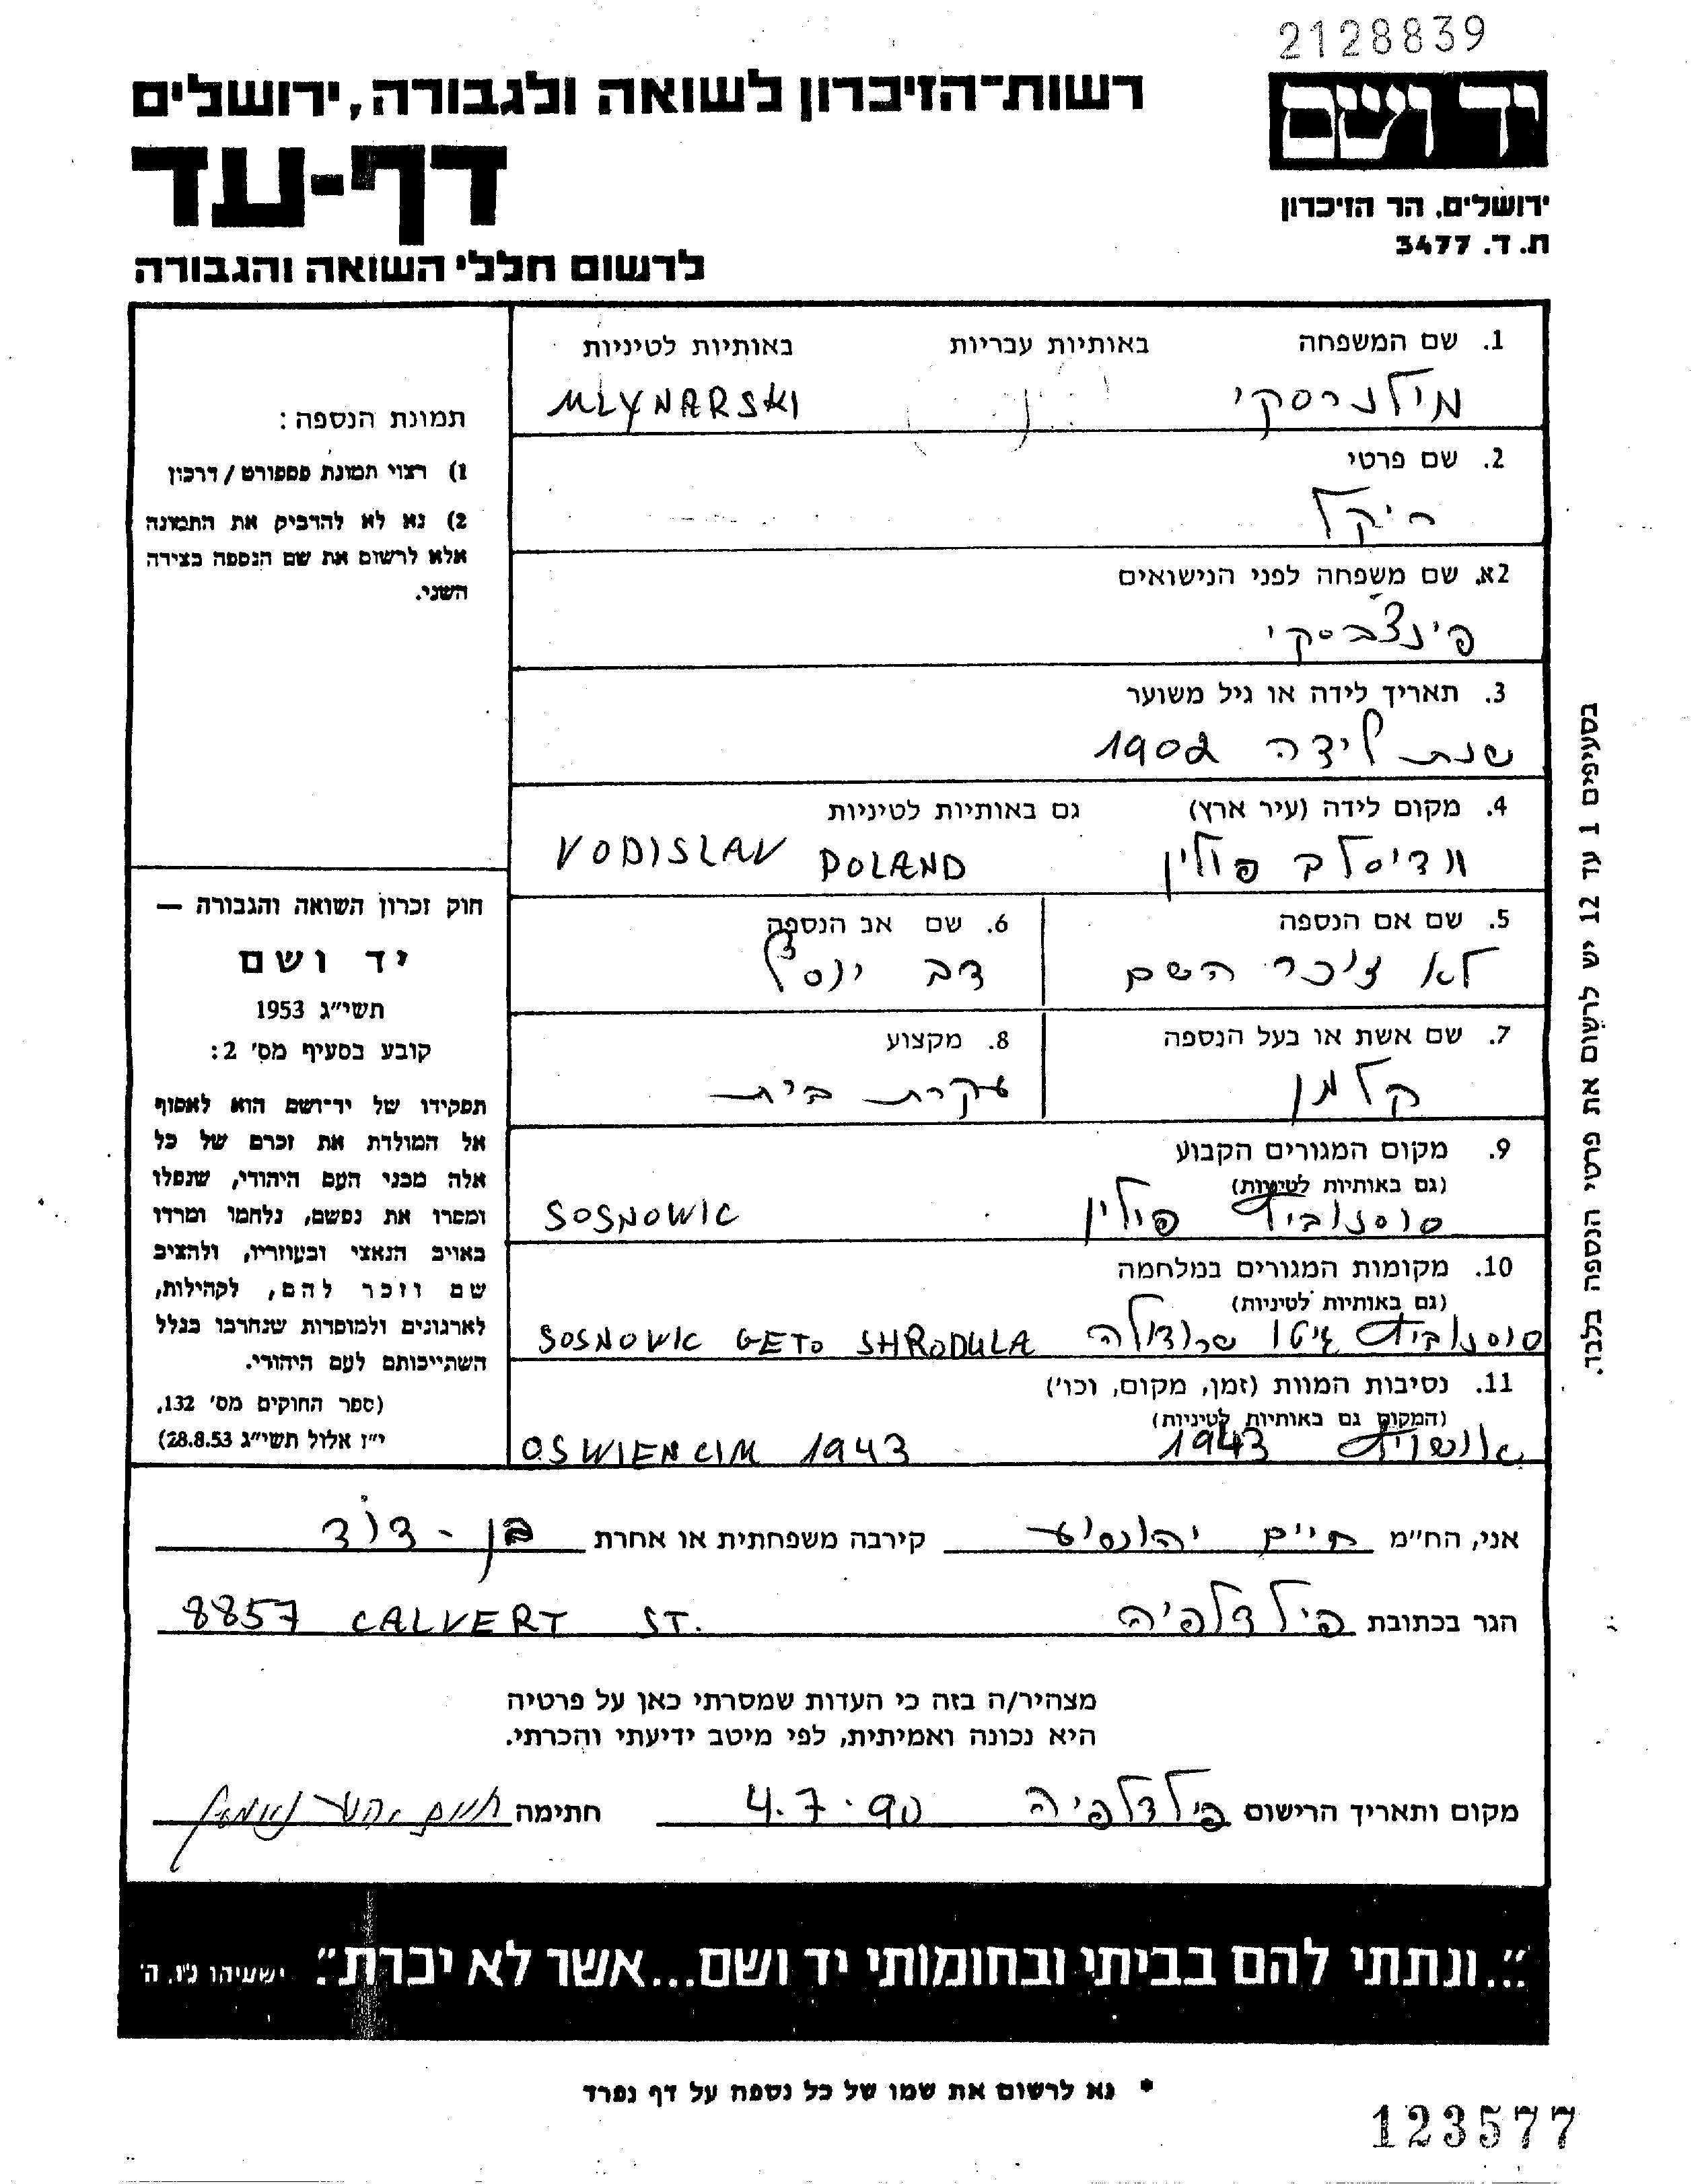 2128839
רשות-הזיכרון לשואה ולגבורה, ירושלים
יד ושם
דף-עד
ירושלים, הר הזיכרון
ת. ד. 3477
לרשום חללי השואה והגבורה
1. שם המשפחה באותיות עבריות באותיות לטיניות
מילנרסקי MLYNARSKI
2. שם פרטי
ריקל
2א. שם משפחה לפני הנישואים
פינצ'בסקי
3. תאריך לידה או גיל משוער
שנת לידה 1902
4. מקום לידה (עיר ארץ) גם באותיות לטיניות
ודיסלב פולין VODISLAV POLAND
5. שם אם הנספה
לא זוכר השם
6. שם אב הנספה
דב יוסל
7. שם אשת או בעל הנספה
קלמן
8. מקצוע
עקרת בית
9. מקום המגורים הקבוע
(גם באותיות לטיניות)
סוסנוביץ פולין SOSNOWIC
10. מקומות המגורים במלחמה
(גם באותיות לטיניות)
סוסנוביץ גיטו שרודולה SOSNOVIC GETO SHRODULA
11. נסיבות המוות (זמן, מקום, וכו')
(המקום גם באותיות לטיניות)
אושויץ 1943 OSWIENCIM 1943
תמונת הנספה:
1) רצוי תמונת פספורט / דרכון
2) נא לא להדביק את התמונה
אלא לרשום את שם הנספה בצידה
השני.
חוק זכרון השואה והגבורה —
יד ושם
תשי"ג 1953
קובע בסעיף מס' 2:
תפקידו של יד-ושם הוא לאסוף
אל המולדת את זכרם של כל
אלה מבני העם היהודי, שנפלו
ומסרו את נפשם, נלחמו ומרדו
באויב הנאצי ובעוזריו, ולהציב
שם וזכר להם, לקהילות,
לארגונים ולמוסדות שנחרבו בגלל
השתייכותם לעם היהודי.
(ספר החוקים מס' 132,
י"ז אלול תשי"ג 28.8.53)
בסעיפים 1 עד 12 יש לרשום את פרטי הנספה בלבד.
אני, הח"מ חיים יהושע קירבה משפחתית או אחרת בן - דוד
הגר בכתובת פילדלפיה 8857 CALVERT ST.
מצהיר/ה בזה כי העדות שמסרתי כאן על פרטיה
היא נכונה ואמיתית, לפי מיטב ידיעתי והכרתי.
מקום ותאריך הרישום פילדלפיה 4.7.90 חתימה
"...ונתתי להם בביתי ובחומותי יד ושם...אשר לא יכרת". ישעיהו נ"ו, ה'
* נא לרשום את שמו של כל נספה על דף נפרד
123577